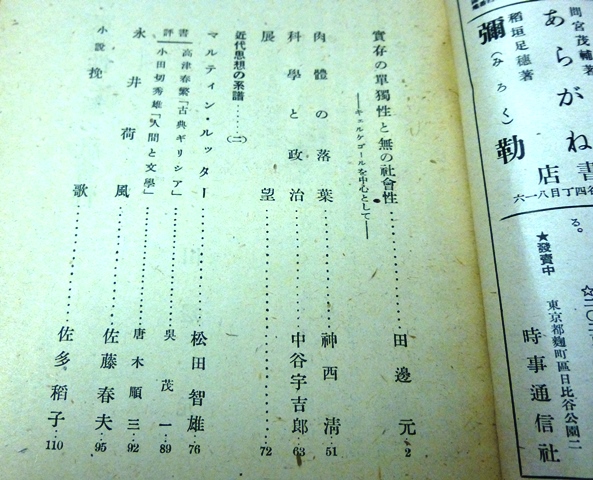 間宮茂輔著
あらがね
稻垣足穂著
彌勒
(みろく)
書店
谷四丁目八一六
る。
★發賣中
東京都麹町區日比谷公園二
時事通信社
實存の單獨性と無の社會性 田邊元 2
――キェルケゴールを中心として――
肉體の落葉 神西清 51
科學と政治 中谷宇吉郎 63
展望 72
近代思想の系譜……(二)
マルティン・ルッター 松田智雄 76
書評 高津春繁「古典ギリシア」 呉茂一 89
小田切秀雄「人間と文學」 唐木順三 92
永井荷風 佐藤春夫 95
小説 挽歌 佐多稻子 110